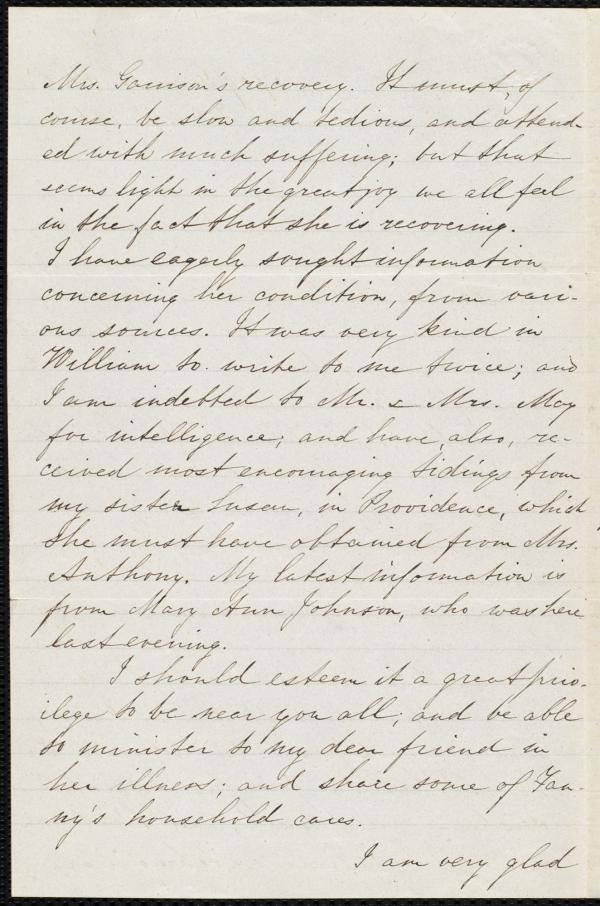 Mrs. Garrison's recovery. It must, of
course, be slow and tedious, and attend-
ed with much suffering; but that
seems light in the great joy we all feel
in the fact that she is recovering.
I have eagerly sought information
concerning her condition, from vari-
ous sources. It was very kind in
William to write to me twice; and
I am indebted to Mr. & Mrs. May
for intelligence; and have, also, re-
ceived most encouraging tidings from
my sister Susan, in Providence, which
she must have obtained from Mrs.
Anthony. My latest information is
from Mary Ann Johnson, who was here
last evening.
I should esteem it a great priv-
ilege to be near you all; and be able
to minister to my dear friend in
her illness; and share some of Fan-
ny's household cares.
I am very glad